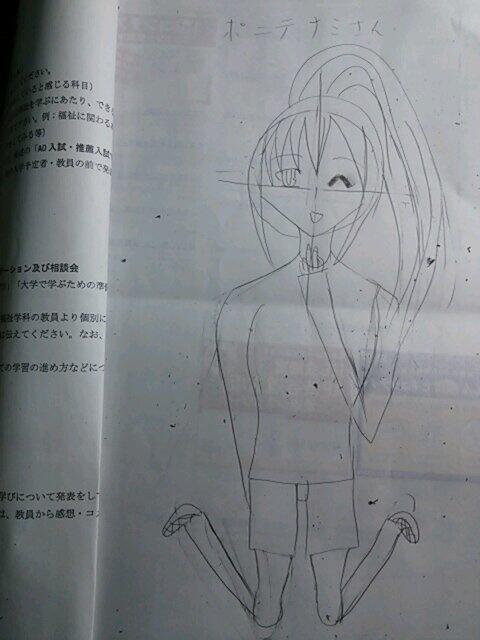 ポニテナミさん
ださい。
いると感じる科目)
を学ぶにあたり、でき
さい。例:福祉に関わる
「AO入試・推薦入試
学予定者・教員の前で発
ーション及び相談会
「大学で学ぶための準備
福祉学科の教員より個別に
は伝えてください。なお、
ての学習の進め方などにつ
学びについて発表をし
は、教員から感想・コ